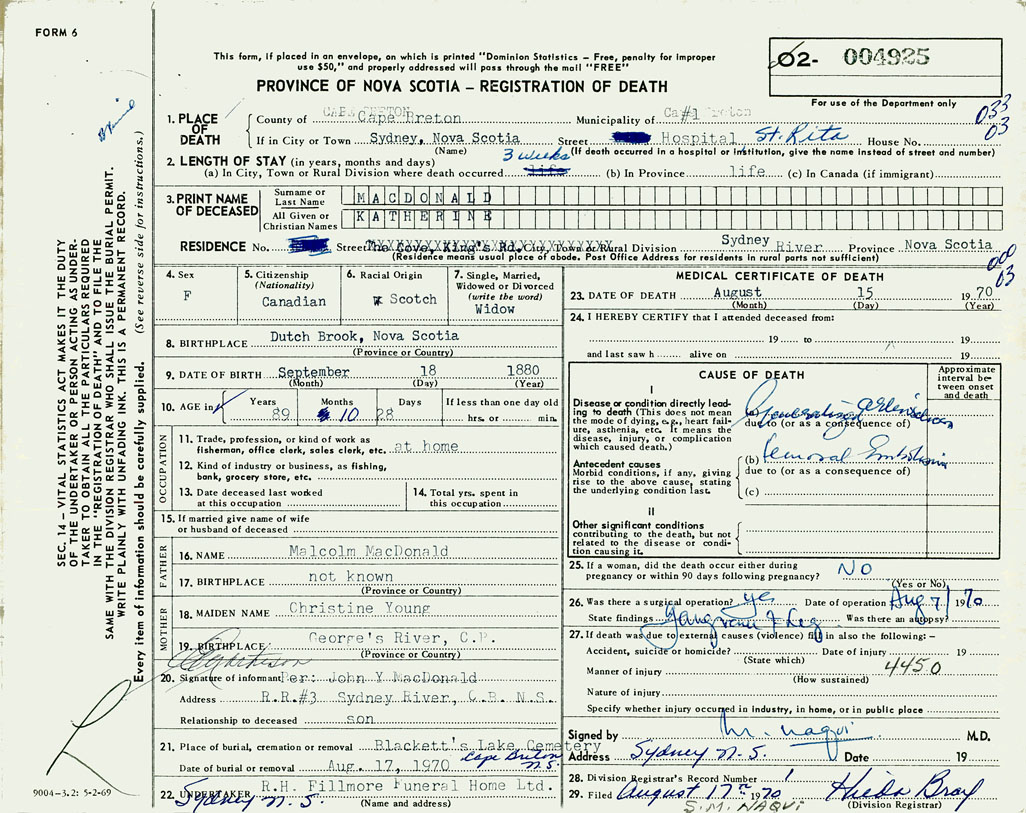 FORM 6
This form, if placed in an envelope, on which is printed "Dominion Statistics – Free, penalty for improper
use $50," and properly addressed will pass through the mail "FREE"
02- 004925
PROVINCE OF NOVA SCOTIA – REGISTRATION OF DEATH
For use of the Department only
033
03
1. PLACE OF DEATH
County of Cape Breton Municipality of Ca#1 Breton
If in City or Town Sydney, Nova Scotia Street Hospital, St. Rita House No.
(Name) (If death occurred in a hospital or institution, give the name instead of street and number)
2. LENGTH OF STAY (in years, months and days) 3 weeks
(a) In City, Town or Rural Division where death occurred life (b) In Province life (c) In Canada (if immigrant)
3. PRINT NAME OF DECEASED
Surname or Last Name MACDONALD
All Given or Christian Names KATHERINE
RESIDENCE No. Street The Cove, King's Rd. City, Town or Rural Division Sydney River Province Nova Scotia
(Residence means usual place of abode. Post Office Address for residents in rural parts not sufficient)
00
03
4. Sex
F
5. Citizenship
(Nationality)
Canadian
6. Racial Origin
Scotch
7. Single, Married,
Widowed or Divorced
(write the word)
Widow
8. BIRTHPLACE Dutch Brook, Nova Scotia
(Province or Country)
9. DATE OF BIRTH September 18 1880
(Month) (Day) (Year)
10. AGE in Years Months Days If less than one day old
89 10 28 hrs. or min.
OCCUPATION
11. Trade, profession, or kind of work as
fisherman, office clerk, sales clerk, etc. at home
12. Kind of industry or business, as fishing,
bank, grocery store, etc.
13. Date deceased last worked
at this occupation
14. Total yrs. spent in
this occupation
15. If married give name of wife
or husband of deceased
FATHER
16. NAME Malcolm MacDonald
17. BIRTHPLACE not known
(Province or Country)
MOTHER
18. MAIDEN NAME Christine Young
19. BIRTHPLACE George's River, C.B.
(Province or Country)
20. Signature of informant Per: John Y MacDonald
Address R.R.#3 Sydney River, C.B. N.S.
Relationship to deceased son
21. Place of burial, cremation or removal Blackett's Lake Cemetery
Date of burial or removal Aug. 17, 1970 Cape Breton N.S.
22. UNDERTAKER R.H. Fillmore Funeral Home Ltd.
Sydney N.S. (Name and address)
9004–3.2: 5-2-69
MEDICAL CERTIFICATE OF DEATH
23. DATE OF DEATH August 15 1970
(Month) (Day) (Year)
24. I HEREBY CERTIFY that I attended deceased from:
19 to 19
and last saw h alive on 19
CAUSE OF DEATH
Approximate
interval be-
tween onset
and death
I
Disease or condition directly lead-
ing to death (This does not mean
the mode of dying, e.g., heart fail-
ure, asthenia, etc. It means the
disease, injury, or complication
which caused death.)
(a)
due to (or as a consequence of)
Antecedent causes
Morbid conditions, if any, giving
rise to the above cause, stating
the underlying condition last.
(b) Femoral Embolism
due to (or as a consequence of)
(c)
II
Other significant conditions
contributing to the death, but not
related to the disease or condi-
tion causing it.
25. If a woman, did the death occur either during
pregnancy or within 90 days following pregnancy? NO
(Yes or No)
26. Was there a surgical operation? yes Date of operation Aug 7/ 1970
State findings Gangrene of Leg Was there an autopsy?
27. If death was due to external causes (violence) fill in also the following: –
Accident, suicide or homicide? Date of injury 19
(State which)
4450
Manner of injury
(How sustained)
Nature of injury
Specify whether injury occurred in industry, in home, or in public place
Signed by M. Naqui M.D.
Address Sydney N.S. Date 19
28. Division Registrar's Record Number 1
29. Filed August 17th 1970 Hilda Bray
S.M. NAQUI (Division Registrar)
SEC. 14 – VITAL STATISTICS ACT MAKES IT THE DUTY
OF THE UNDERTAKER OR PERSON ACTING AS UNDER-
TAKER TO OBTAIN ALL THE PARTICULARS REQUIRED
IN THE "REGISTRATION OF DEATH" AND TO FILE THE
SAME WITH THE DIVISION REGISTRAR WHO SHALL ISSUE THE BURIAL PERMIT.
WRITE PLAINLY WITH UNFADING INK. THIS IS A PERMANENT RECORD.
Every item of information should be carefully supplied. (See reverse side for instructions.)